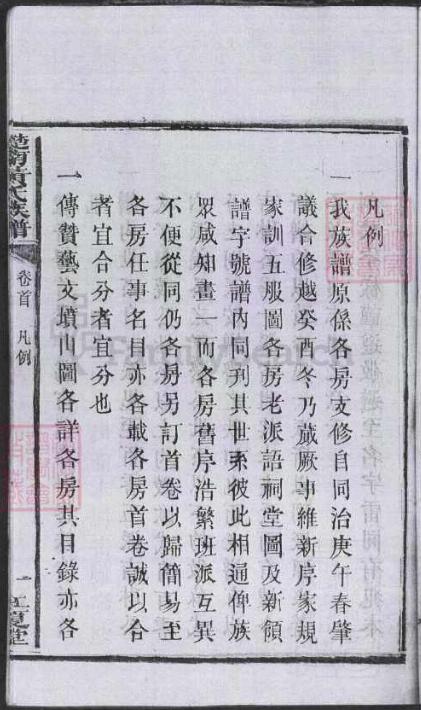 凡例
一我族譜原係各房支修自同治庚午春肇
議合修越癸酉冬乃蕆厥事維新序家規
家訓五服圖各房老派語祠堂圖及新領
譜字號譜內同刊其世系彼此相通俾族
眾咸知畫一而各房舊序浩繁班派互異
不便從同仍各房另訂首卷以歸簡易至
各房任事名目亦各載各房首卷誠以合
者宜合分者宜分也
一傳贊藝文墳山圖各詳各房其目錄亦各
楚南黃氏族譜
卷首 凡例
一 江夏堂
FamilySearch